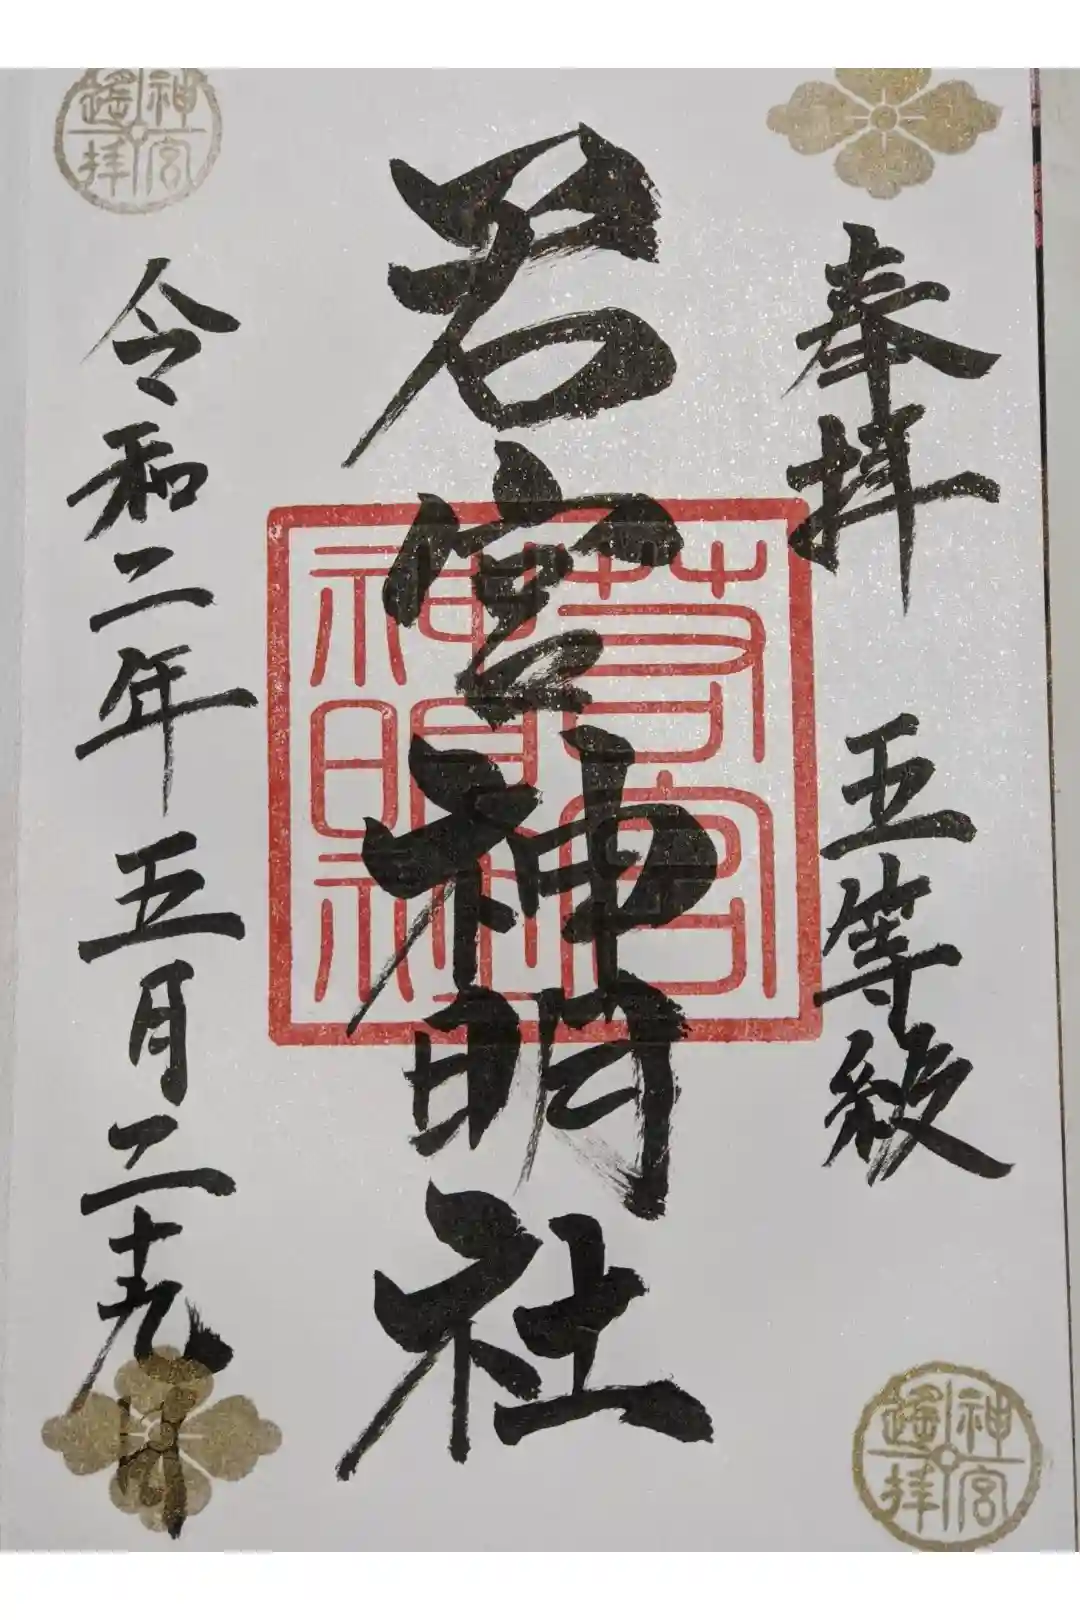 奉拝 五等級
若宮神明社
若宮
神明社
令和二年五月二十九日
神宮
遙拝
神宮
遙拝